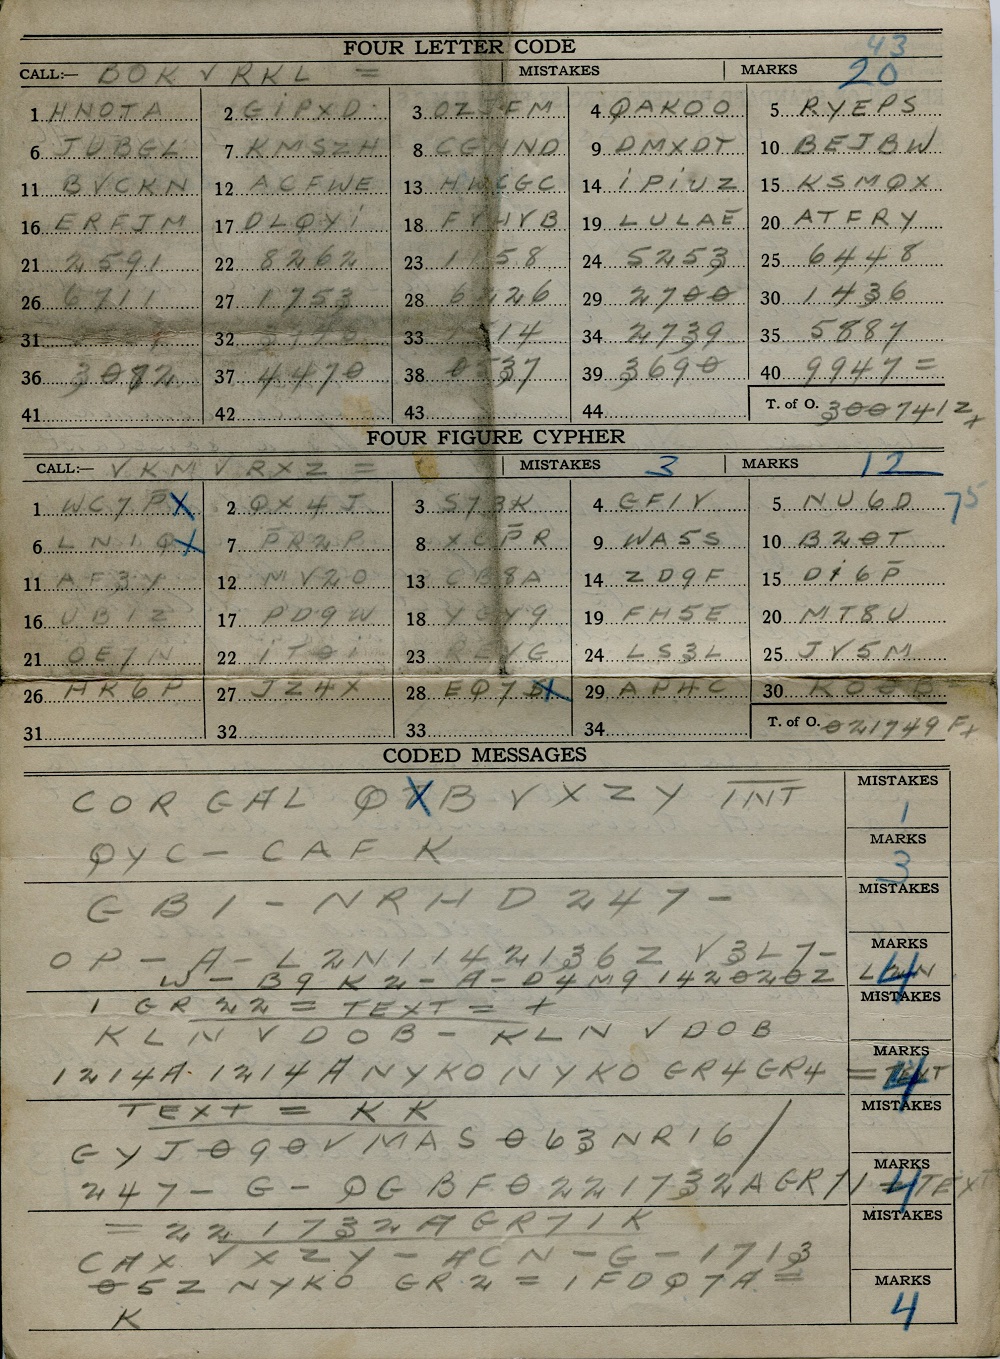 FOUR LETTER CODE 43
CALL:— BOK V RKL = MISTAKES MARKS 20
1 HNOTA 2 GiPXD 3 OZJFM 4 QAKOO 5 RYEPS
6 JUBGL 7 KMSZH 8 CGNND 9 DMXDT 10 BEJBW
11 BVCKN 12 ACFWE 13 HWCGC 14 iPiUZ 15 KSMQX
16 ERFJM 17 DLQYi 18 FVHVB 19 LULAE 20 ATFRY
21 2591 22 8262 23 24 5253 25 6448
26 6711 27 1753 28 6226 29 2700 30 1436
31 32 33 34 2739 35 5887
36 3082 37 4470 38 39 3690 40 9947 =
41 42 43 44 T. of O. 300741Z+
FOUR FIGURE CYPHER
CALL:— VKM V RXZ = MISTAKES 3 MARKS 12
1 WC7P 2 QX4J 3 S73K 4 GF1V 5 NU6D 75
6 LN1Q 7 PR2P 8 XCPR 9 WA5S 10 B20T
11 AF3Y 12 MV20 13 CB8A 14 ZD9F 15 Di6P
16 UB1Z 17 PD9W 18 YGY9 19 FH5E 20 MT8U
21 OE7N 22 iT0i 23 24 LS3L 25 JV5M
26 HK6P 27 JZ4X 28 EQ7 29 APHC 30
31 32 33 34 T. of O. 021749F+
CODED MESSAGES
COR GAL Q B V X Z Y INT MISTAKES 1
QYC — CAF K MARKS 3
GB1 — NRHD 247 — MISTAKES
OP — A — L2N1142136Z V3L7 — MARKS 4
W — B9K2 — A — D4M9 142020Z L2N
1 GR22 = TEXT = + MISTAKES
KLN V DOB — KLN V DOB
1214A 1214A NYKO NYKO GR4 GR4 = TEXT MARKS 4
TEXT = KK MISTAKES
GYJ090V MAS 063 NR16 /
247 — G — QG BF0 221732A GR71 = TEXT MARKS 4
= 221732A GR71 K MISTAKES
CAX V XZY — ACN — G — 1713
05Z NYKO GR2 = 1FDQ7A = MARKS 4
K